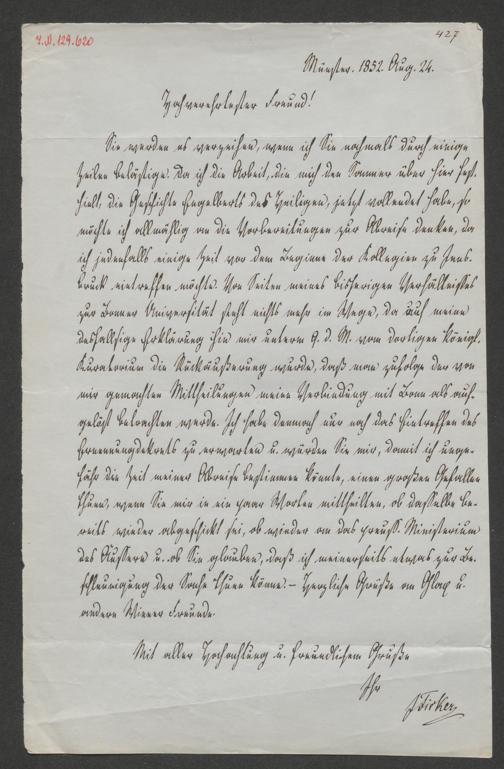 I.N. 129.620
427
Münster. 1852. Aug. 24.
Hochverehrtester Freund!
Sie werden es verzeihen, wenn ich Sie nochmals durch einige
Zeilen belästige. Da ich die Arbeit, die mich den Sommer über hier fest-
hielt, die Geschichte Engelberts des Heiligen, jetzt vollendet habe, so
möchte ich allmählig an die Vorbereitungen zur Abreise denken, da
ich jedenfalls einige Zeit vor dem Beginne der Kollegien zu Inns-
bruck eintreffen möchte. Von Seiten meines bisherigen Verhältnisses
zur Bonner Universität steht nichts mehr im Wege, da auf meine
desfallsige Erklärung hin mir unterm 9. d. M. vom dortigen königl.
Kuratorium die Rückäußerung wurde, daß man zufolge der von
mir gemachten Mittheilungen meine Verbindung mit Bonn als auf-
gelöst betrachten werde. Ich habe demnach nur noch das Eintreffen des
Ernennungsdekrets zu erwarten u. würden Sie mir, damit ich unge-
fähr die Zeit meiner Abreise bestimmen könnte, einen großen Gefallen
thuen, wenn Sie mir in ein paar Worten mittheilten, ob dasselbe be-
reits wieder abgeschickt sei, ob wieder an das preuß. Ministerium
des Äussern u. ob Sie glauben, daß ich meinerseits etwas zur Be-
schleunigung der Sache thuen könne. – Herzliche Grüße an Glax u.
andere Wiener Freunde.
Mit aller Hochachtung u. freundlichem Gruße
Ihr
JFicker